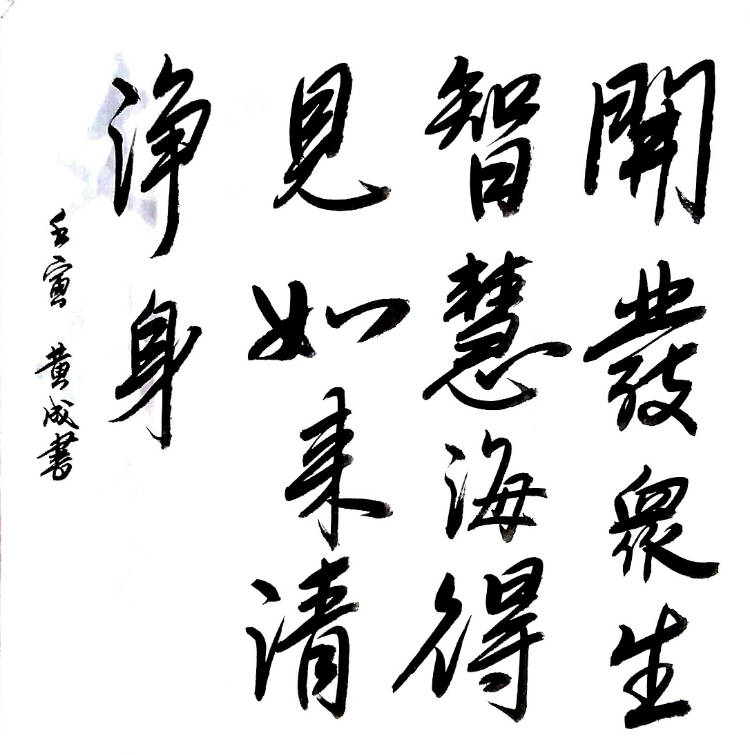 開發眾生
智慧海得
見如来清
淨身
壬寅 黄成書